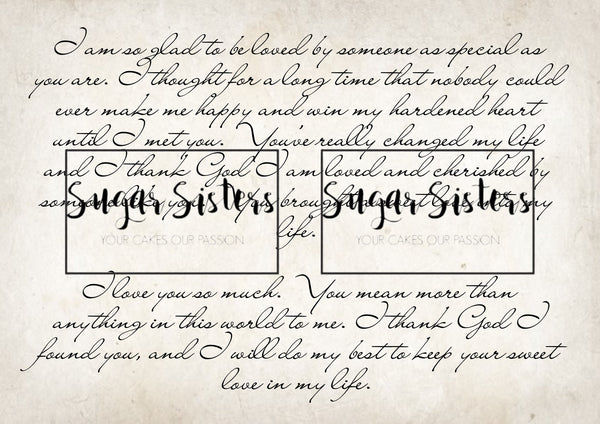 I am so glad to be loved by someone as special as
you are. I thought for a long time that nobody could
ever make me happy and win my hardened heart
until I met you. You've really changed my life
and I thank God I am loved and cherished by
someone like you. You brought love into my
life.
Sugar Sisters Sugar Sisters
YOUR CAKES OUR PASSION YOUR CAKES OUR PASSION
I love you so much. You mean more than
anything in this world to me. I thank God I
found you, and I will do my best to keep your sweet
love in my life.